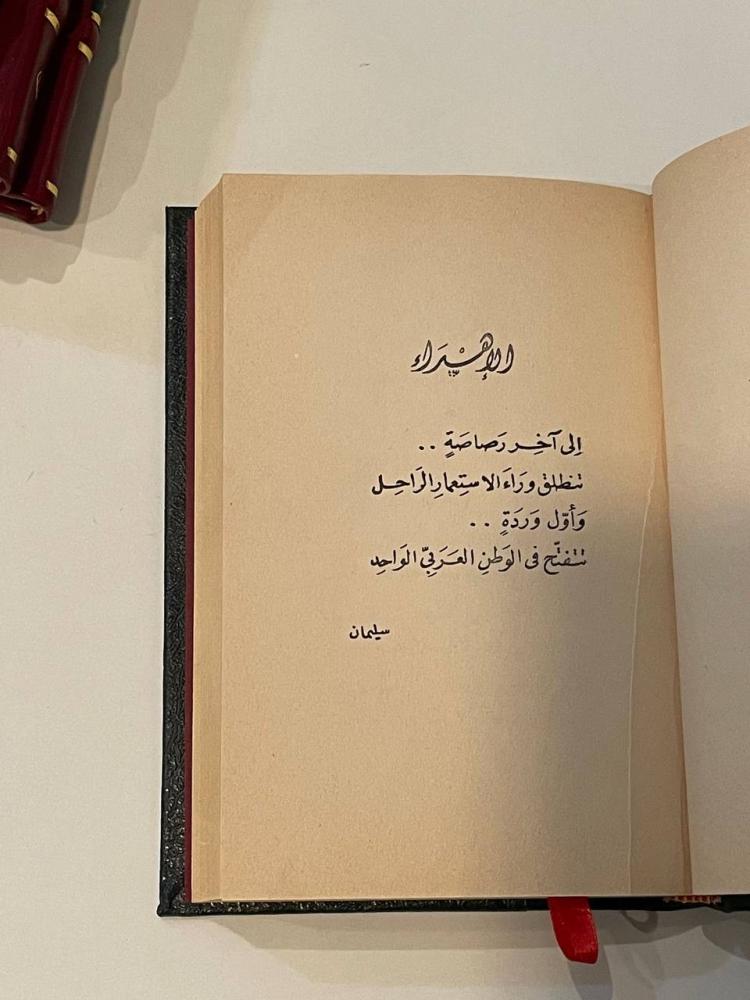 الإهْدَاء
إلى آخِر رَصاصَةٍ ..
تنطلق ورَاءَ الاستِعمارِ الرَاحِل
وَأوّل وَردَةٍ ..
تتفتّح في الوَطنِ العَرَبيّ الوَاحِد
سليمان